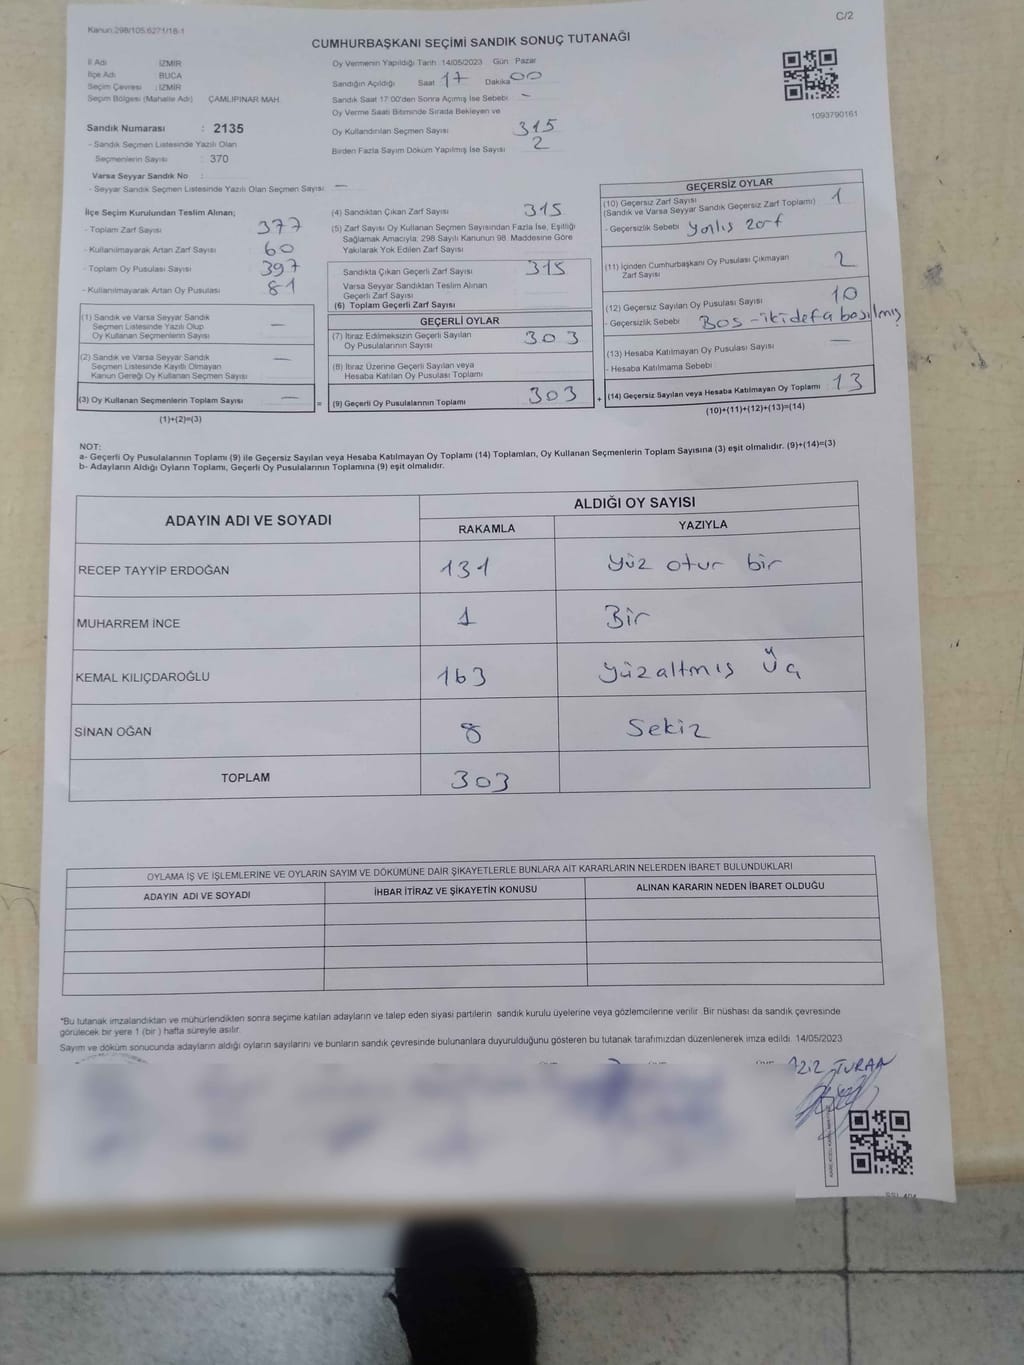 Kanun:298/105.6271/18-1
C/2
CUMHURBAŞKANI SEÇİMİ SANDIK SONUÇ TUTANAĞI
İl Adı İZMİR
İlçe Adı BUCA
Seçim Çevresi : İZMİR
Seçim Bölgesi (Mahalle Adı) ÇAMLIPINAR MAH.
Sandık Numarası : 2135
- Sandık Seçmen Listesinde Yazılı Olan
Seçmenlerin Sayısı : 370
Varsa Seyyar Sandık No :
- Seyyar Sandık Seçmen Listesinde Yazılı Olan Seçmen Sayısı: —
Oy Vermenin Yapıldığı Tarih :14/05/2023 Gün Pazar
Sandığın Açıldığı Saat 17 Dakika 00
Sandık Saat 17:00'den Sonra Açımış İse Sebebi –
Oy Verme Saati Bitiminde Sırada Bekleyen ve
Oy Kullandırılan Seçmen Sayısı 315
Birden Fazla Sayım Döküm Yapılmış İse Sayısı 2
1093790161
İlçe Seçim Kurulundan Teslim Alınan;
- Toplam Zarf Sayısı 377
- Kullanılmayarak Artan Zarf Sayısı 60
- Toplam Oy Pusulası Sayısı 397
- Kullanılmayarak Artan Oy Pusulası 81
(1) Sandık ve Varsa Seyyar Sandık
Seçmen Listesinde Yazılı Olup
Oy Kullanan Seçmenlerin Sayısı —
(2) Sandık ve Varsa Seyyar Sandık
Seçmen Listesinde Kayıtlı Olmayan
Kanun Gereği Oy Kullanan Seçmen Sayısı —
(3) Oy Kullanan Seçmenlerin Toplam Sayısı —
(1)+(2)=(3)
=
(4) Sandıktan Çıkan Zarf Sayısı 315
(5) Zarf Sayısı Oy Kullanan Seçmen Sayısından Fazla İse, Eşitliği
Sağlamak Amacıyla; 298 Sayılı Kanunun 98. Maddesine Göre
Yakılarak Yok Edilen Zarf Sayısı
Sandıkta Çıkan Geçerli Zarf Sayısı 315
Varsa Seyyar Sandıktan Teslim Alınan
Geçerli Zarf Sayısı
(6) Toplam Geçerli Zarf Sayısı
GEÇERLİ OYLAR
(7) İtiraz Edilmeksizin Geçerli Sayılan
Oy Pusulalarının Sayısı 303
(8) İtiraz Üzerine Geçerli Sayılan veya
Hesaba Katılan Oy Pusulası Toplamı
(9) Geçerli Oy Pusulalarının Toplamı 303
+
GEÇERSİZ OYLAR
(10) Geçersiz Zarf Sayısı 1
(Sandık ve Varsa Seyyar Sandık Geçersiz Zarf Toplamı)
- Geçersizlik Sebebi yanlış zarf
(11) İçinden Cumhurbaşkanı Oy Pusulası Çıkmayan
Zarf Sayısı 2
(12) Geçersiz Sayılan Oy Pusulası Sayısı 10
- Geçersizlik Sebebi Bos - iki defa basılmış
(13) Hesaba Katılmayan Oy Pusulası Sayısı —
- Hesaba Katılmama Sebebi
(14) Geçersiz Sayılan veya Hesaba Katılmayan Oy Toplamı : 13
(10)+(11)+(12)+(13)=(14)
NOT:
a- Geçerli Oy Pusulalarının Toplamı (9) ile Geçersiz Sayılan veya Hesaba Katılmayan Oy Toplamı (14) Toplamları, Oy Kullanan Seçmenlerin Toplam Sayısına (3) eşit olmalıdır. (9)+(14)=(3)
b- Adayların Aldığı Oyların Toplamı, Geçerli Oy Pusulalarının Toplamına (9) eşit olmalıdır.
ADAYIN ADI VE SOYADI
ALDIĞI OY SAYISI
RAKAMLA YAZIYLA
RECEP TAYYİP ERDOĞAN 131 yüz otur bir
MUHARREM İNCE 1 Bir
KEMAL KILIÇDAROĞLU 163 yüzaltmış Üç
SİNAN OĞAN 8 Sekiz
TOPLAM 303
OYLAMA İŞ VE İŞLEMLERİNE VE OYLARIN SAYIM VE DÖKÜMÜNE DAİR ŞİKAYETLERLE BUNLARA AİT KARARLARIN NELERDEN İBARET BULUNDUKLARI
ADAYIN ADI VE SOYADI İHBAR İTİRAZ VE ŞİKAYETİN KONUSU ALINAN KARARIN NEDEN İBARET OLDUĞU
*Bu tutanak imzalandıktan ve mühürlendikten sonra seçime katılan adayların ve talep eden siyasi partilerin sandık kurulu üyelerine veya gözlemcilerine verilir. Bir nüshası da sandık çevresinde
görülecek bir yere 1 (bir ) hafta süreyle asılır.
Sayım ve döküm sonucunda adayların aldığı oyların sayılarını ve bunların sandık çevresinde bulunanlara duyurulduğunu gösteren bu tutanak tarafımızdan düzenlenerek imza edildi. 14/05/2023
AZİZ TURAN